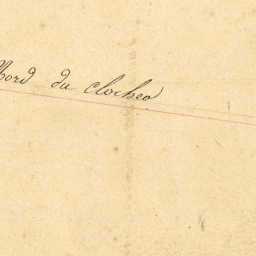 Nord du clocher